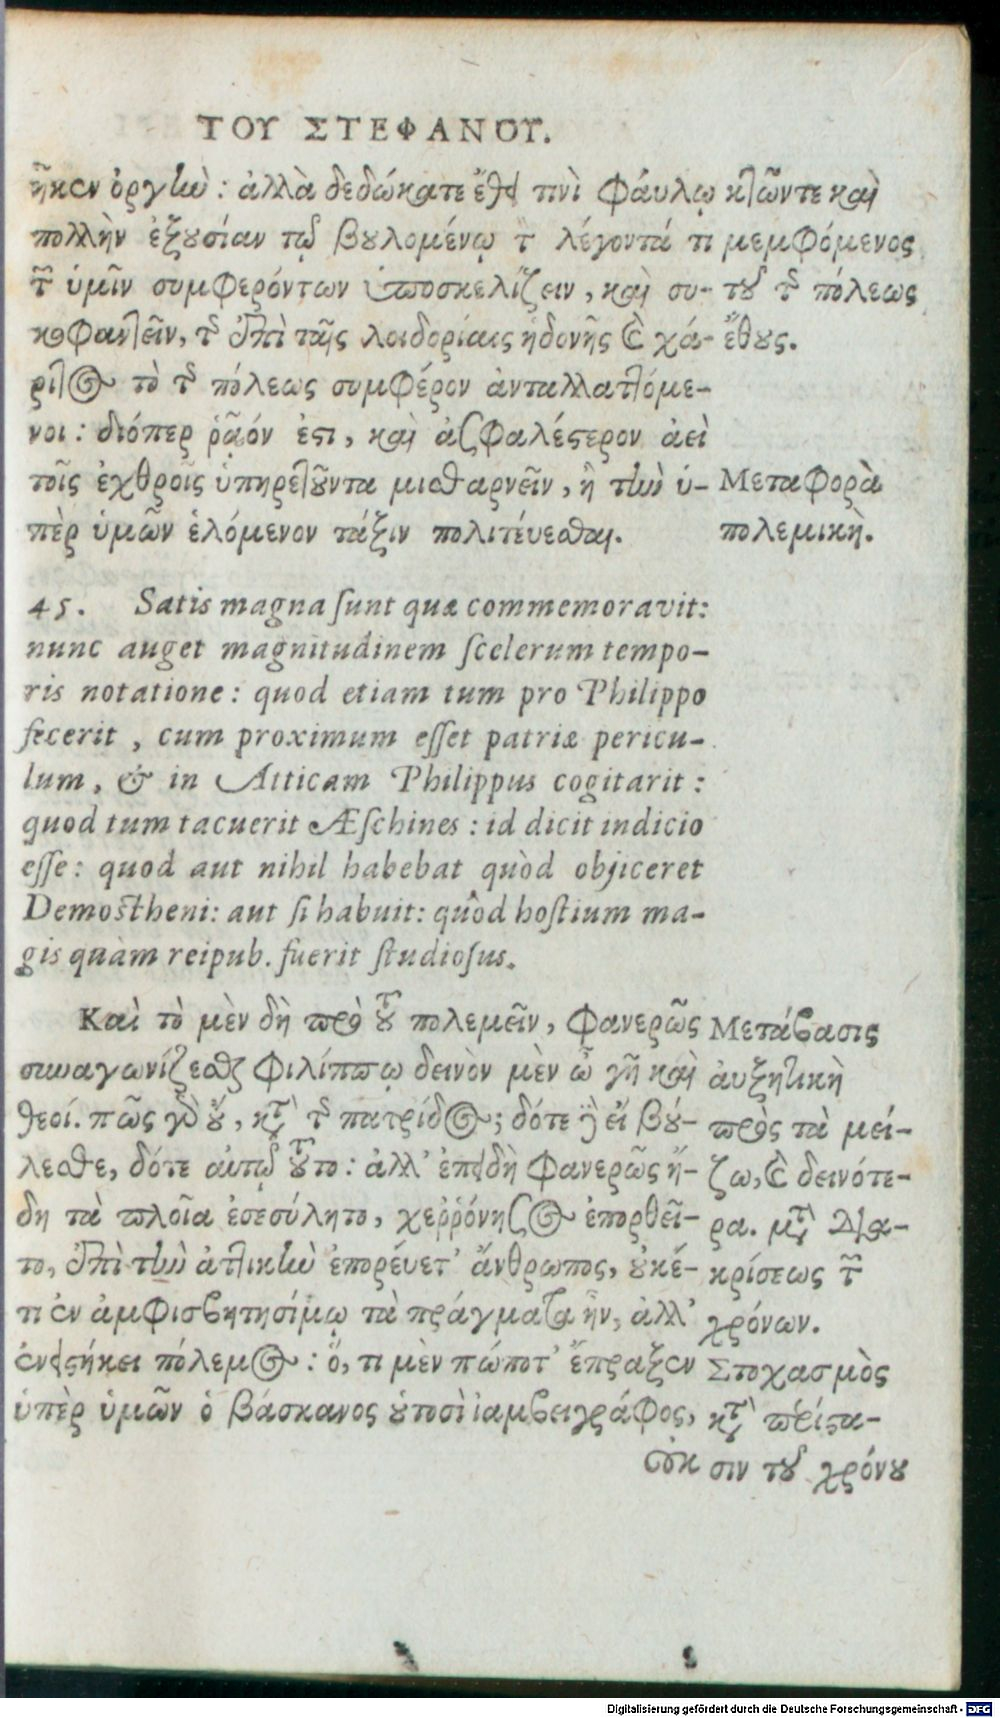 ΤΟΥ ΣΤΕΦΑΝΟΥ.
ῆκεν ὀργὴν: ἀλλὰ δεδώκατε ἔθει τινὶ φάυλῳ
πολλὴν ἐξουσίαν τῷ βουλομένῳ τὸν λέγοντά τι
τῶν ὑμῖν συμφερόντων ὑποσκελίζειν, καὶ συ-
κοφαντεῖν, τῆς ἐπὶ ταῖς λοιδορίαις ἡδονῆς καὶ χά-
ριτος τὸ τῆς πόλεως συμφέρον ἀνταλλαττόμε-
νοι: διόπερ ῥᾷόν ἐστι, καὶ ἀσφαλέστερον ἀεὶ
τοῖς ἐχθροῖς ὑπηρετοῦντα μισθαρνεῖν, ἢ τὴν ὑ-
πὲρ ὑμῶν ἑλόμενον τάξιν πολιτέυεσθαι.
κτῶντε καὶ
μεμφόμενος
τοῦ τῆς πόλεως
ἔθους.
Μεταφορὰ
πολεμικὴ.
45. Satis magna sunt quæ commemoravit:
nunc auget magnitudinem scelerum tempo-
ris notatione: quod etiam tum pro Philippo
fecerit, cum proximum esset patriæ pericu-
lum, & in Atticam Philippus cogitarit:
quod tum tacuerit Æschines: id dicit indicio
esse: quod aut nihil habebat quòd objiceret
Demostheni: aut si habuit: quòd hostium ma-
gis quàm reipub. fuerit studiosus.
Καὶ τὸ μὲν δὴ πρὸ τοῦ πολεμεῖν, φανερῶς
συναγωνίζεσθαι Φιλίππῳ δεινὸν μὲν ὦ γῆ καὶ
θεοί. πῶς γὰρ οὔ, κατὰ τῆς πατρίδος; δότε δὲ εἰ βού-
λεσθε, δότε αὐτῷ τοῦτο: ἀλλ' ἐπειδὴ φανερῶς ἤ-
δη τὰ πλοῖα ἐσεσύλητο, χεῤῥόνησος ἐπορθεῖ-
το, ἐπὶ τὴν ἀττικὴν ἐπορέυετ' ἄνθρωπος, οὐκέ-
τι ἐν ἀμφισβητησίμῳ τὰ πράγματα ἦν, ἀλλ'
ἐνειστήκει πόλεμος: ὅ, τι μὲν πώποτ' ἔπραξεν
ὑπὲρ ὑμῶν ὁ βάσκανος οὑτοσὶ ἰαμβειγράφος,
οὐκ
Μετάβασις
ἀυξητικὴ
πρὸς τὰ μεί-
ζω, καὶ δεινότε-
ρα. μετὰ δια-
κρίσεως τῶν
χρόνων.
Στοχασμὸς
κατὰ περίστα-
σιν τοῦ χρόνου
Digitalisierung gefördert durch die Deutsche Forschungsgemeinschaft - DFG